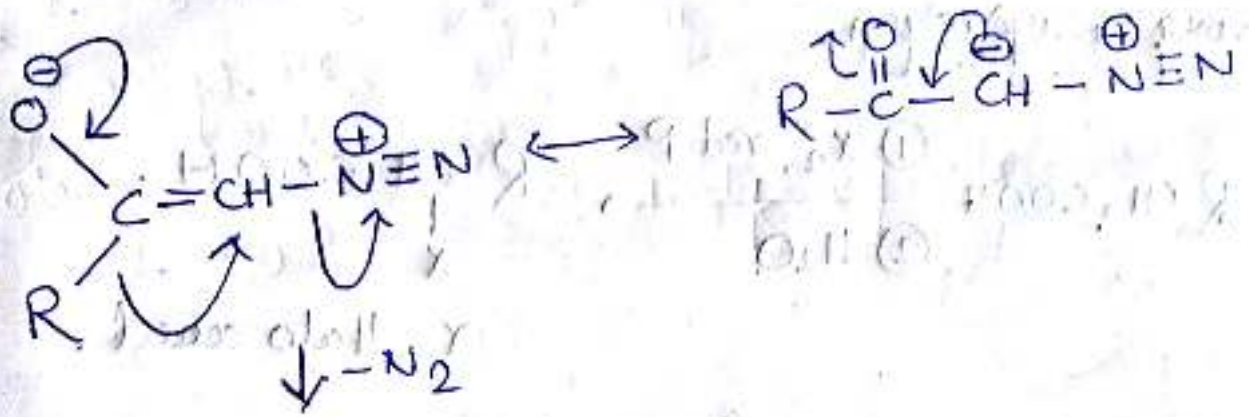 O
‖
R – C – CH – N ≡ N
⊖ ⊕
⊖
O
⊕
C = CH – N ≡ N ⟷
R
↓ – N₂